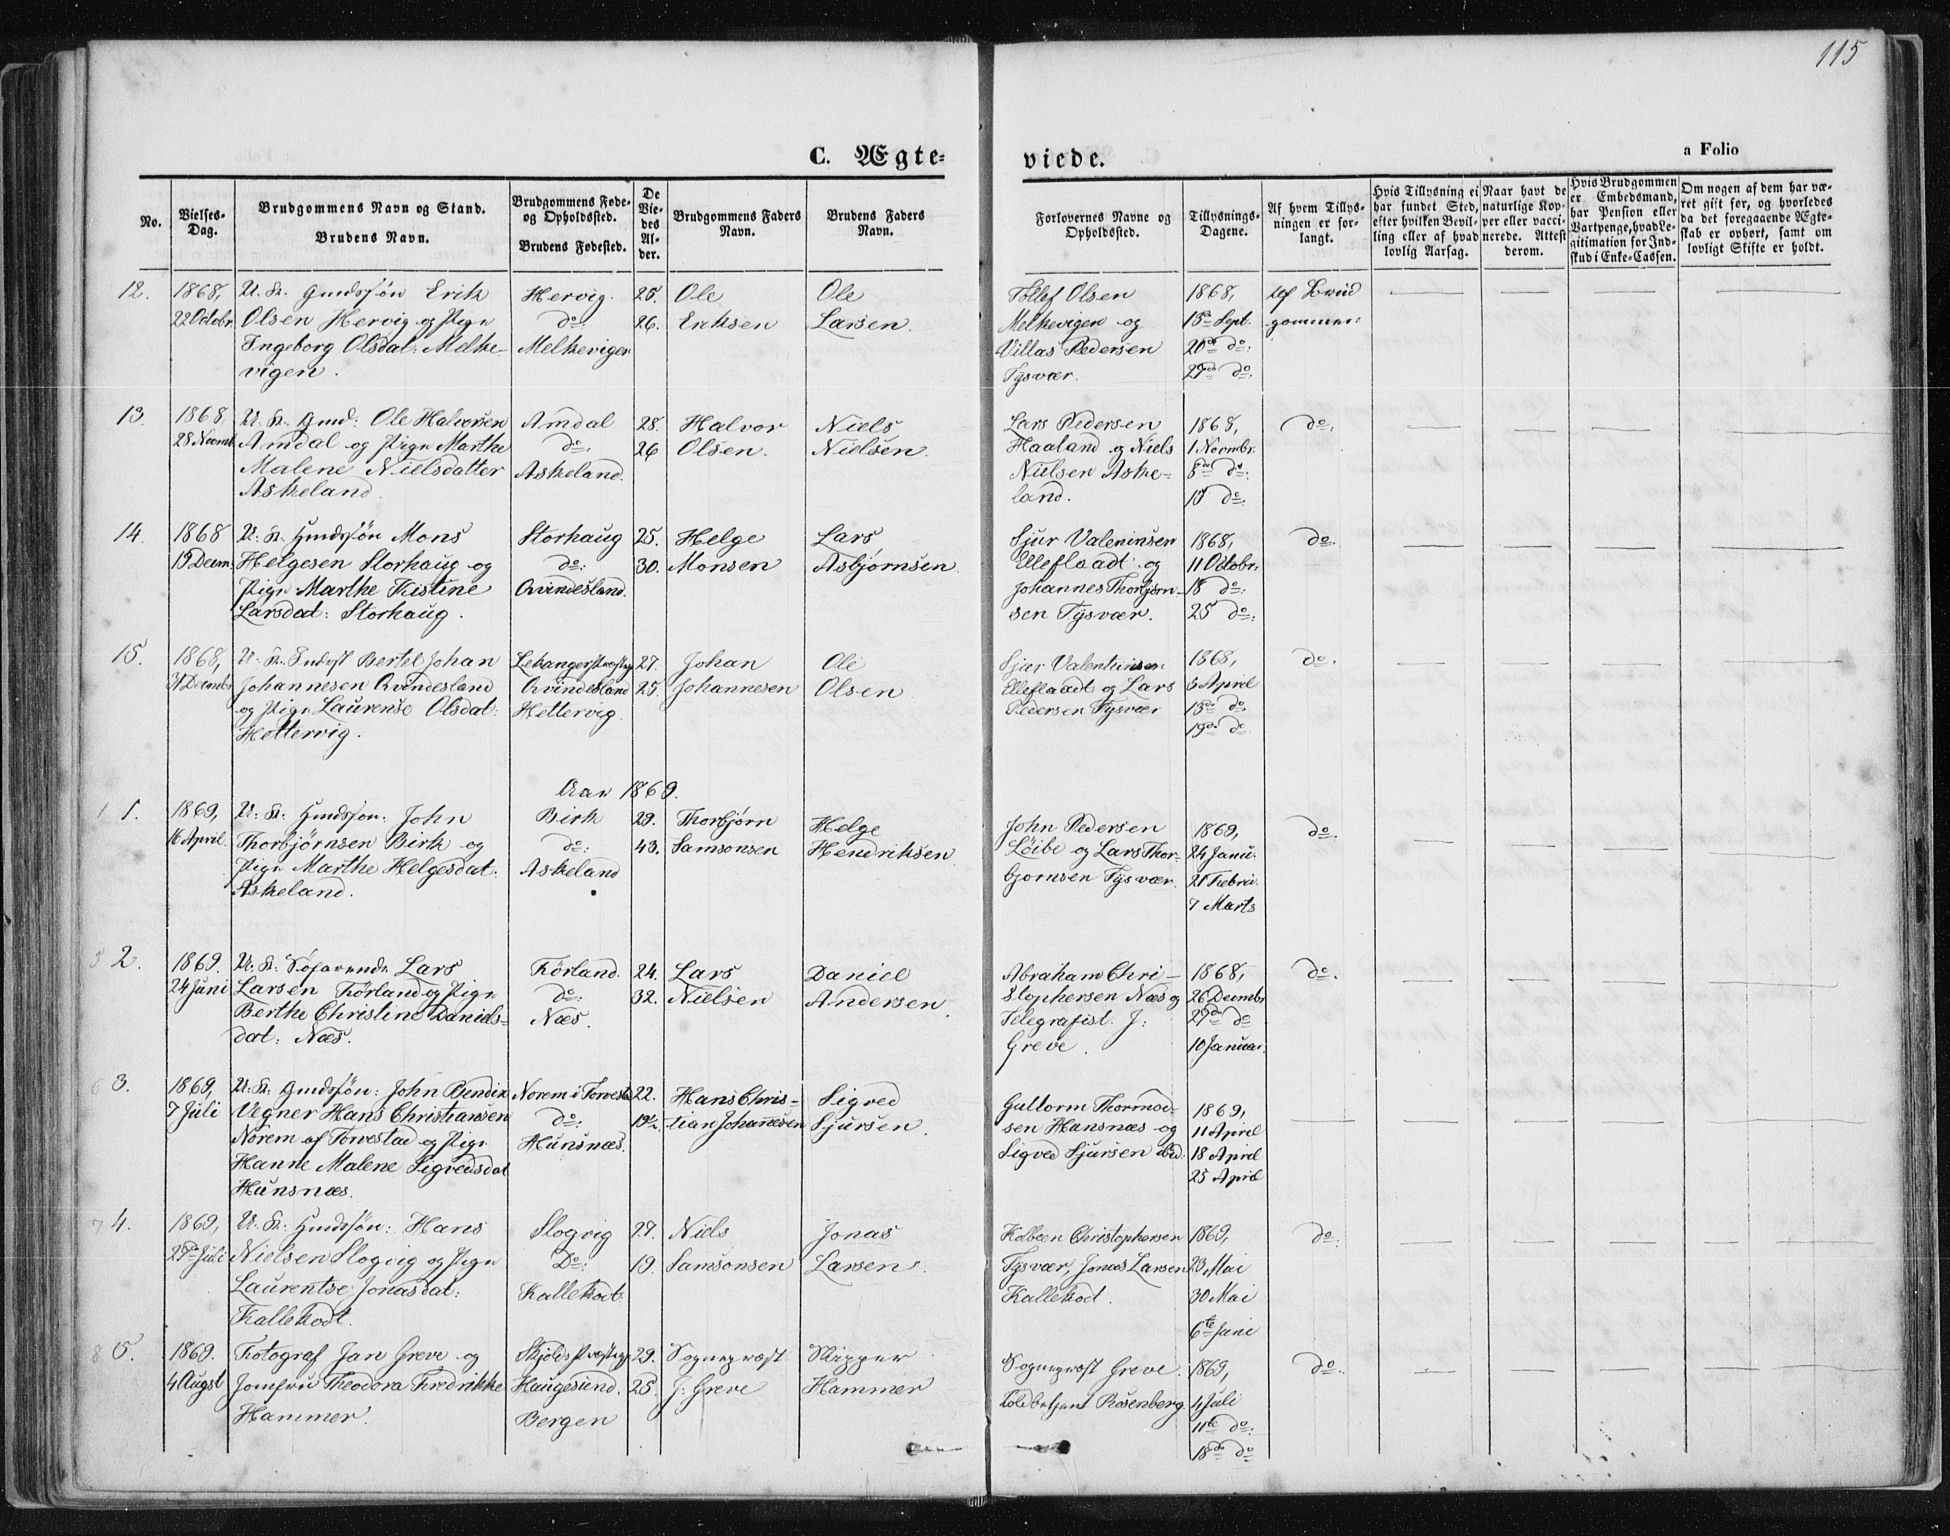 115
C. Ægte-
viede.
a Folio
No.
Vielses-
Dag.
Brudgommens Navn og Stand.
Brudens Navn.
Brudgommens Føde-
og Opholdssted.
Brudens Fødested.
De
Vie-
des
Al-
der.
Brudgommens Faders
Navn.
Brudens Faders
Navn.
Forlovernes Navne og
Opholdssted.
Tillysnings-
Dagene.
Af hvem Tillys-
ningen er for-
langt.
Hvis Tillysning ei
har fundet Sted,
efter hvilken Bevil-
ling eller af hvad
lovlig Aarsag.
Naar havt de
naturlige Kop-
per eller vacci-
nerede. Attest
derom.
Hvis Brudgommen
er Embedsmand,
har Pension eller
Vartpenge, hvad Le-
gitimation for Ind-
skud i Enke-Cassen.
Om nogen af dem har væ-
ret gift før, og hvorledes
da det foregaaende Ægte-
skab er ophørt, samt om
lovligt Skifte er holdt.
12. 1868, U. K. Gmdssøn Erik Hervig. 25. Ole Ole Tollef Olsen 1868, Af Brud
22 Octobr. Olsen Hervig og Pige do: 26. Eriksen Larsen. Melkevigen og 13de Sept. gommen.
Ingeborg Olsdat: Melke- Melkevigen Villas Pedersen 20de do:
vigen. Tysvær. 27de do:
13. 1868 U. K. Gmd: Ole Halvorsen Amdal 28. Halvor Niels Lars Pedersen 1868, do.
28 Novmb. Amdal og Pige Marthe do: 26 Olsen. Nielsen. Haaland og Niels 1 Novmbr.
Malene Nielsdatter Askeland. Nielsen Aske- 8de do:
Askeland. land. 15 do:
14. 1868 U. K. Gmdssøn Mons Storhaug 25. Helge Lars Sjur Valeninsen 1868, do.
Decm. Helgesen Storhaug og do: 30. Monsen Asbjørnsen. Elleflaadt og 11 Octobr.
Pige Marthe Kistine Qvindesland. Johannes Thorbjørn- 18 do:
Larsdat: Storhaug. sen Tysvær. 25 do:
15. 1868, U. K. Bertel Johan 27. Johan Ole Sjur Valentinsen 1868, do.
31 Decmbr Johannesen Qvindesland Qvindesland 25. Johannesen Olsen. Elleflaadt og Lars April
og Pige Laurense Olsdat: Hettervig. Pedersen Tysvær 13de do.
Hettervig. 19de do
Aar 1869.
1 1. 1869, U. K. Gmdssøn: John Birk 29. Thorbjørn Helge John Pedersen 1869, do.
16 April. Thorbjørnsen Birk og do: 43. Samsonsen Hendriksen. Løibe og Lars Thor- 24 Janu.
Pige Marthe Helgesdat: Askeland bjørnsen Tysvær. 21 Febru.
Askeland. 7 Marts
2. 1869. U. K. Søfarende Lars Førland. 24. Lars Daniel Abraham Chri- 1868, do.
24 Juni Larsen Førland og Pige do: 32. Nielsen Andersen. stophersen Næs og 26 Decmbr
Berthe Christine Daniels- Næs. Telegrafist J: 27de do
dat: Næs. Greve. 10 Januar.
6 3. 1869, U. K. Gmdssøn: John Bendix Norem i Torvestad 22. Hans Chris- Sigved Guttorm Thormod- 1869,
7 Juli Vegner Hans Christiansen do: tian Johannesen Sjursen. sen Hunsnæs og 11 April
Norem af Torvestad og Pige Hunsnæs. Sigved Sjursen ibd. 18 April
Hanne Malene Sigvedsdat 25 April
Hunsnæs.
7 4. 1869, U. K. Gmdssøn: Hans Slogvig 27. Niels Jonas Kolbeen Christophersen 1869, do:
27de Juli Nielsen Slogvig og Pige Do: 19. Samsonsen Larsen. Tysvær, Jonas Larsen 23 Mai
Laurentse Jonasdat: Kallekodt. Kallekodt. 30 Mai
Kallekodt. 6te Juni
8 5. 1869. Fotograf Jan Greve og Skjolds Præstegj 29. Sognepræst Skipper Sognepræst Greve. 1869, do.
4 Augst Jomfru Theodora Fredrikke Haugesund. 25. J: Greve Hammer Toldbetjent Rosenberg. 4 Juli
Hammer. Bergen 11te do:
18de do